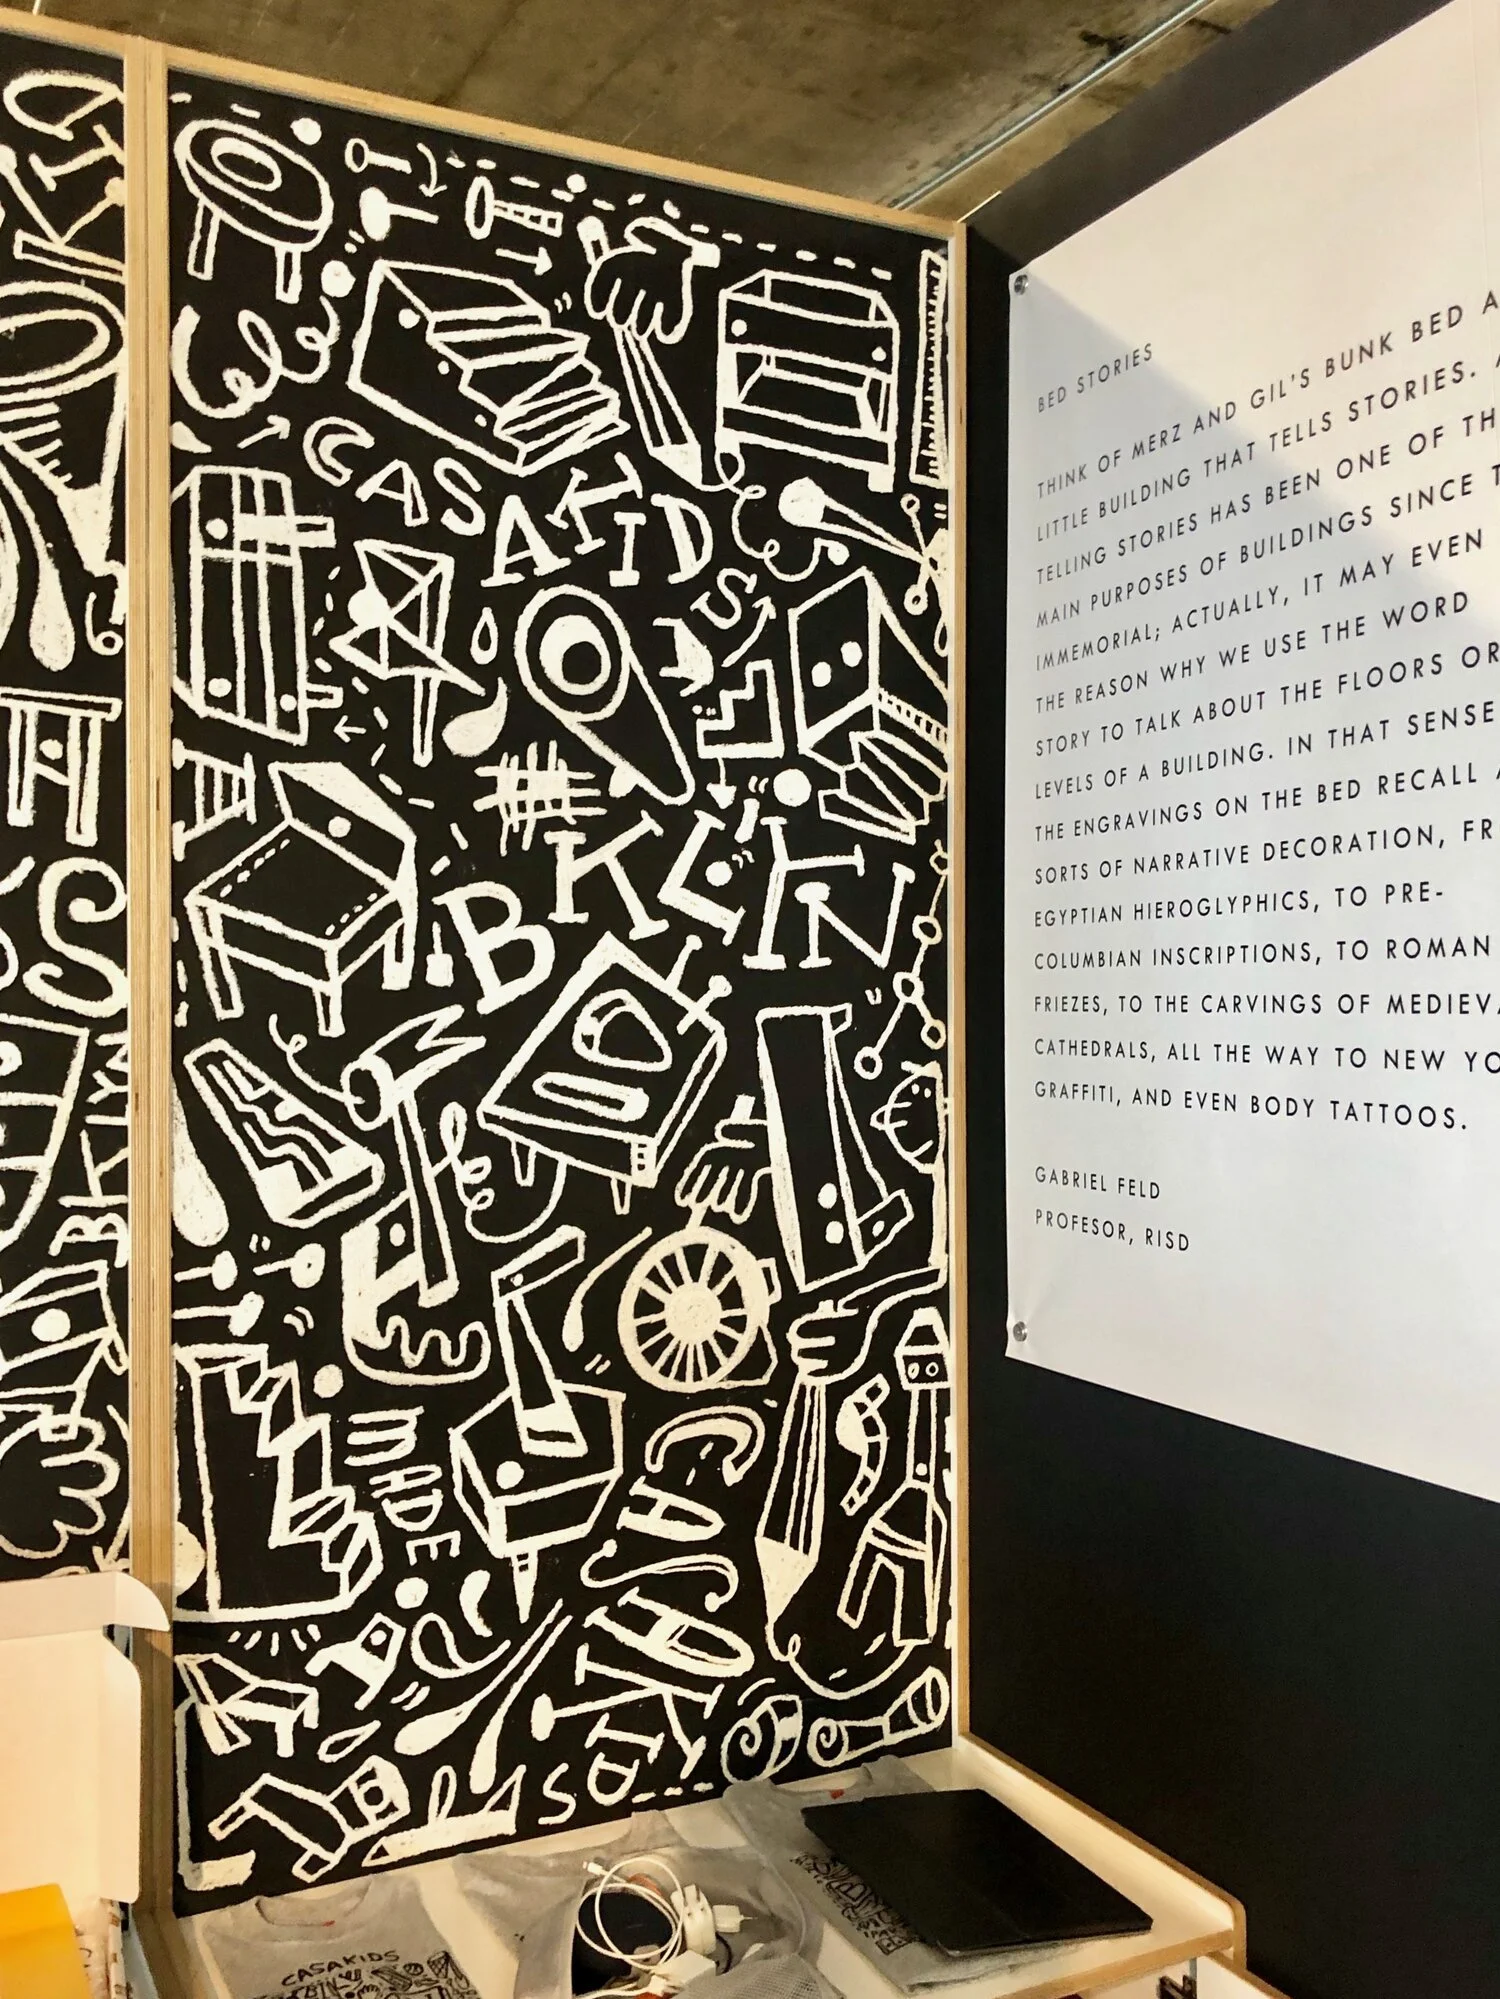 CASAKIDS
#BKLYN
MADE
CASA
KIDS
'S
BKLYN
CASAKIDS
BED STORIES
THINK OF MERZ AND GIL'S BUNK BED A
LITTLE BUILDING THAT TELLS STORIES.
TELLING STORIES HAS BEEN ONE OF TH
MAIN PURPOSES OF BUILDINGS SINCE T
IMMEMORIAL; ACTUALLY, IT MAY EVEN
THE REASON WHY WE USE THE WORD
STORY TO TALK ABOUT THE FLOORS OR
LEVELS OF A BUILDING. IN THAT SENSE
THE ENGRAVINGS ON THE BED RECALL A
SORTS OF NARRATIVE DECORATION, FR
EGYPTIAN HIEROGLYPHICS, TO PRE-
COLUMBIAN INSCRIPTIONS, TO ROMAN
FRIEZES, TO THE CARVINGS OF MEDIEVA
CATHEDRALS, ALL THE WAY TO NEW YO
GRAFFITI, AND EVEN BODY TATTOOS.
GABRIEL FELD
PROFESOR, RISD